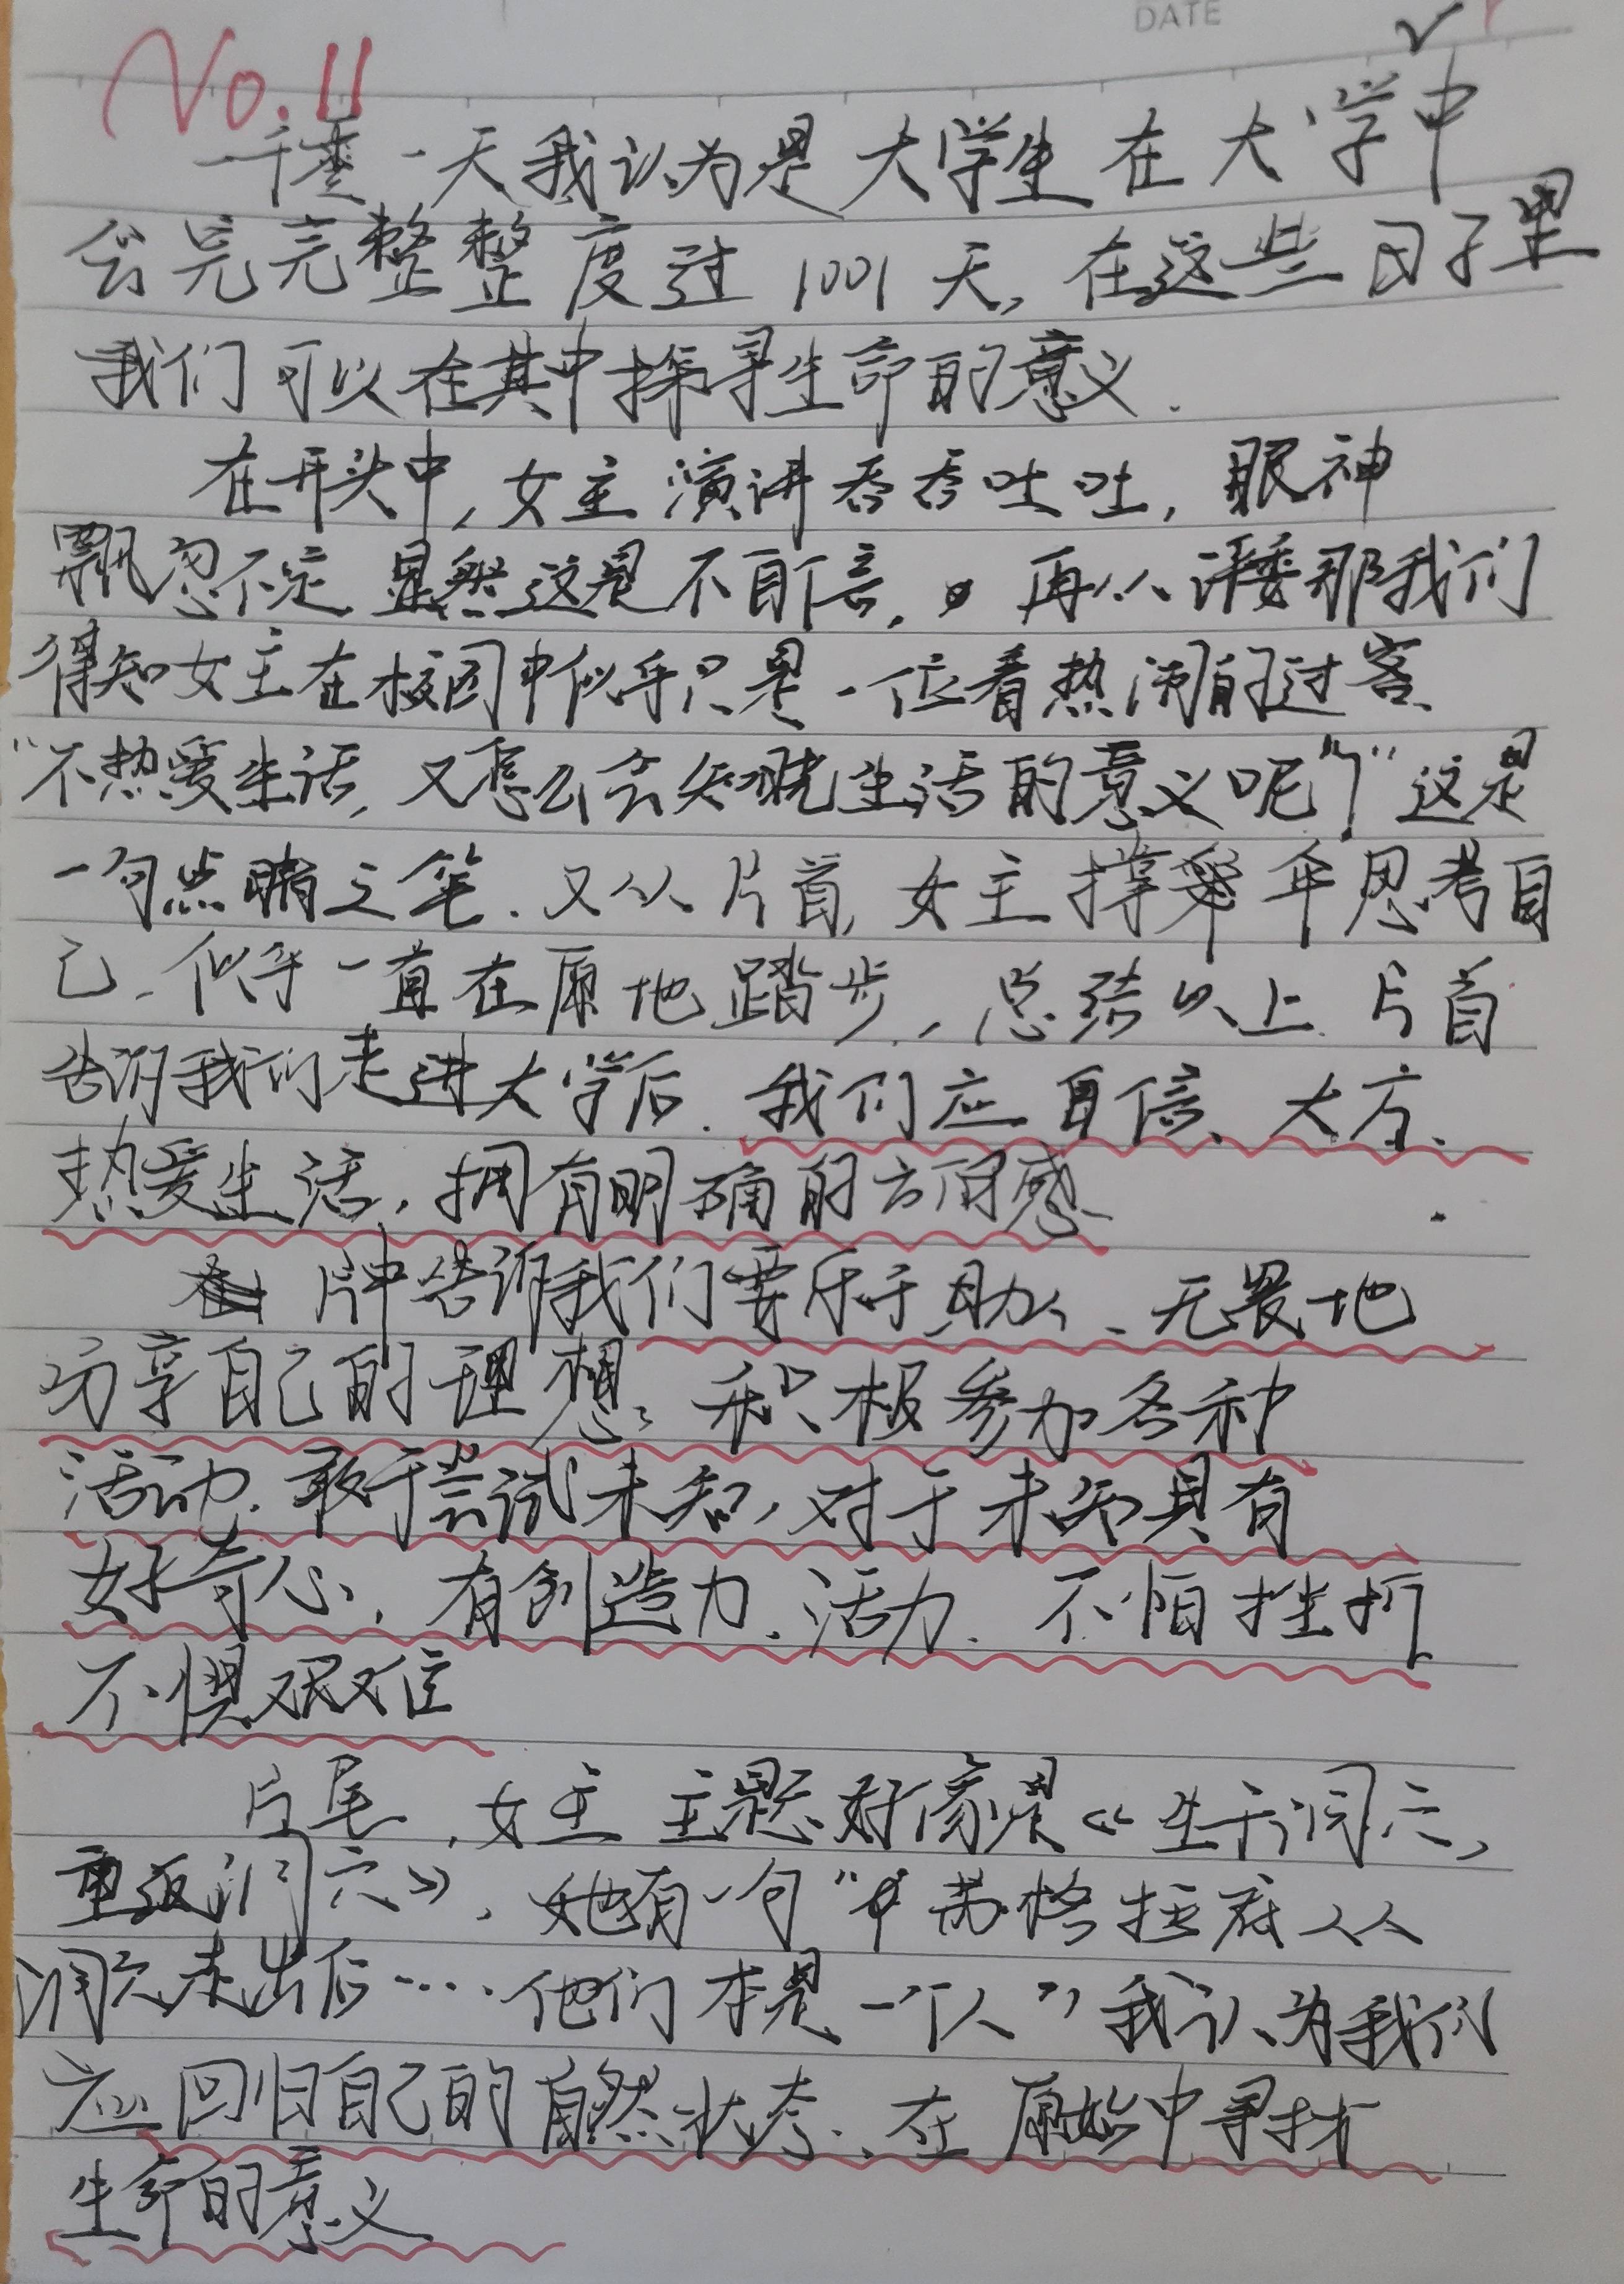 DATE
No.11
一千零一天我认为是大学生在大学中
会完完整整度过1001天,在这些日子里
我们可以在其中探寻生命的意义.
在开头中,女主演讲吞吞吐吐,眼神
飘忽不定显然这是不自信,。再从评委那我们
得知女主在校园中似乎只是一位看热闹的过客、
“不热爱生活,又怎么会知晓生活的意义呢”这是
一句点睛之笔.又从片首,女主撑伞思考自
己、似乎一直在原地踏步,总结以上、片首
告诉我们走进大学后.我们应自信、大方、
热爱生活,拥有明确的方向感
片中告诉我们要乐于助人、无畏地
分享自己的理想、积极参加各种
活动.敢于尝试未知,对于未知具有
好奇心,有创造力、活力、不怕挫折
不惧艰难
片尾,女主主题好像是《生于洞穴,
重返洞穴》,她有一句“苏格拉底从
洞穴走出后……他们本是一个人”我认为我们
应回归自己的自然状态、在原始中寻找
生命的意义